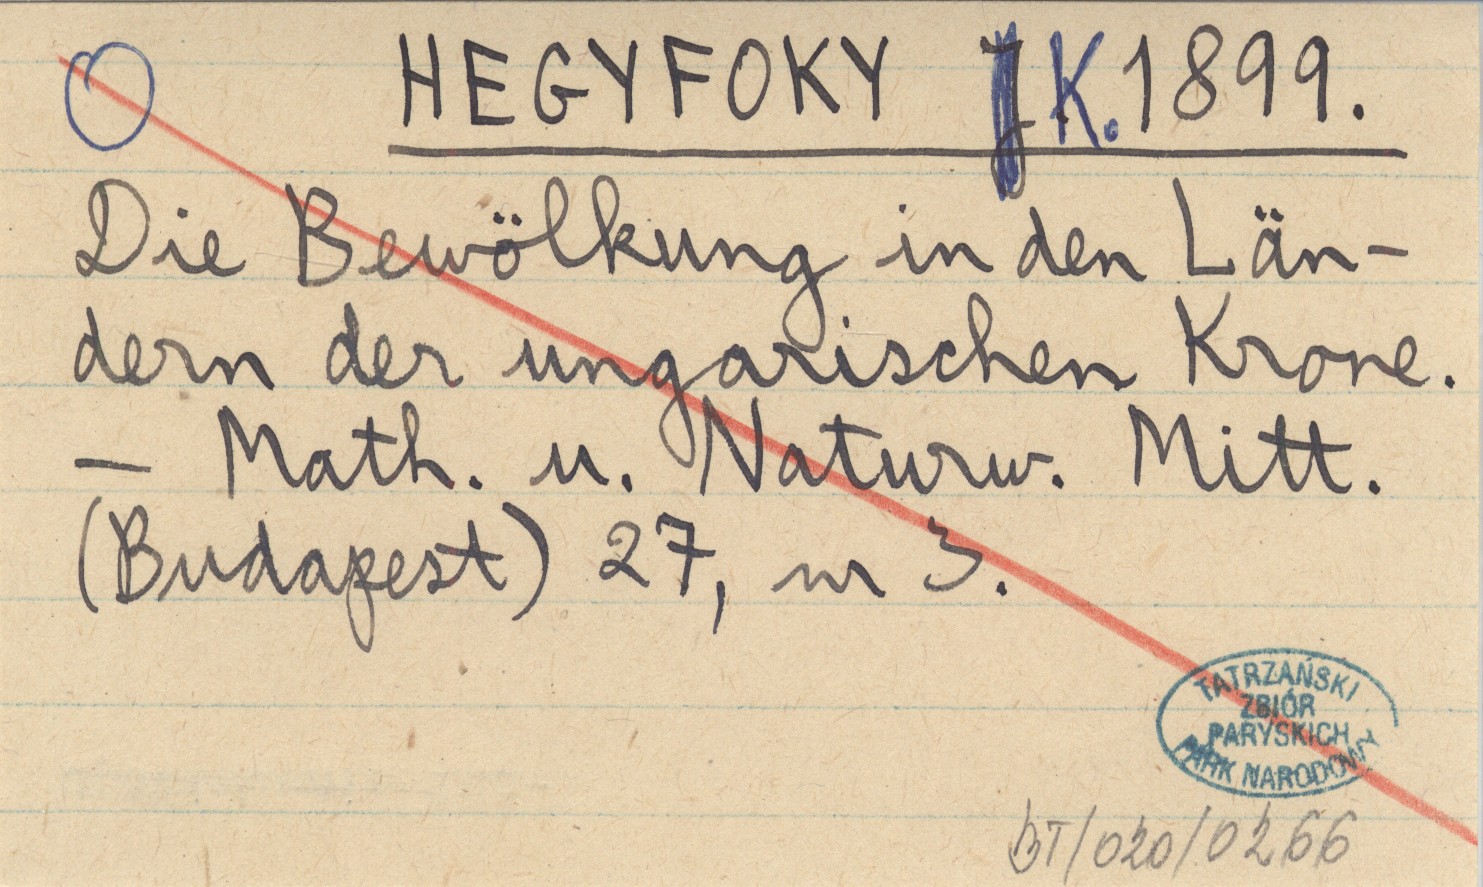 HEGYFOKY K. 1899.
Die Bewölkung in den Län-
dern der ungarischen Krone.
— Math. u. Naturw. Mitt.
(Budapest) 27, nr 3.
TATRZAŃSKI
ZBIÓR
PARYSKICH
PARK NARODOWY
BT/020/0266